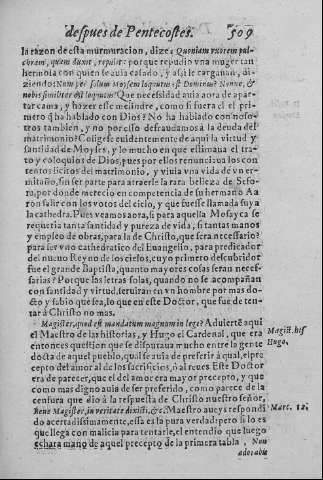 despues de Pentecostes. 509
la razon de esta murmuracion, dize: Quoniam uxorem pul-
chram, quam duxit, repulit: porque repudio vna muger tan
hermosa con quien se auia casado, y assi le cargauan, di-
ziendo: Num per solum Moysem loquutus est Dominus? Nonne, &
nobis similiter est loquutus? Que necessidad auia aora de apar-
tar cama, y hazer esse melindre, como si fuera el el pri-
mero q̃ ha hablado con Dios? No ha hablado con noso-
tros tambien, y no por esso defraudamos a la deuda del
matrimonio? Coligese euidentemente de aqui la virtud y
santidad de Moyses, y lo mucho en que estimaua el tra-
to y coloquios de Dios, pues por ellos renunciaua los con-
tentos licitos del matrimonio, y viuia vna vida de vn er-
mitaño, sin ser parte para atraerle la rara belleza de Sefo-
ra, por donde merecio en competencia de su hermano Aa
ron salir con los votos del cielo, y que fuesse llamada suya
la cathedra. Pues veamos aora, si para aquella Mosayca se
requeria tanta santidad y pureza de vida, si tantas manos
y empleo de obras, para la de Christo, que sera necessario?
para ser vno cathedratico del Euangelio, para predicador
del nueuo Reyno de los cielos, cuyo primero descubridor
fue el grande Baptista, quanto mayores cosas seran neces-
sarias? Porque las letras solas, quando no se acompañan
con santidad y virtud, seruiran en vn hombre por mas do-
cto y sabio que sea, lo que en este Doctor, que fue de ten-
tar à Christo no mas.
Magister, quod est mandatum magnum in lege? Aduierte aqui
el Maestro de las historias, y Hugo el Cardenal, que era
entonces question que se disputaua mucho entre la gente
docta de aquel pueblo, qual se auia de preferir à qual, el pre-
cepto del amor al de los sacrificios, ò al reues. Este Doctor
era de parecer, que el del amor era mayor precepto, y que
como mas digno auia de ser preferido, como parece de la
censura que dio à la respuesta de Christo nuestro señor,
Bene Magister, in veritate dixisti, &c. Maestro aueys respondi
do acertadissimamente, essa es la pura verdad: pero si lo es
que llega con malicia para tentarle, el entendio que luego
echara mano de aquel precepto de la primera tabla, Non
adorabis
Magist. hist
Hugo.
Marc. 12.